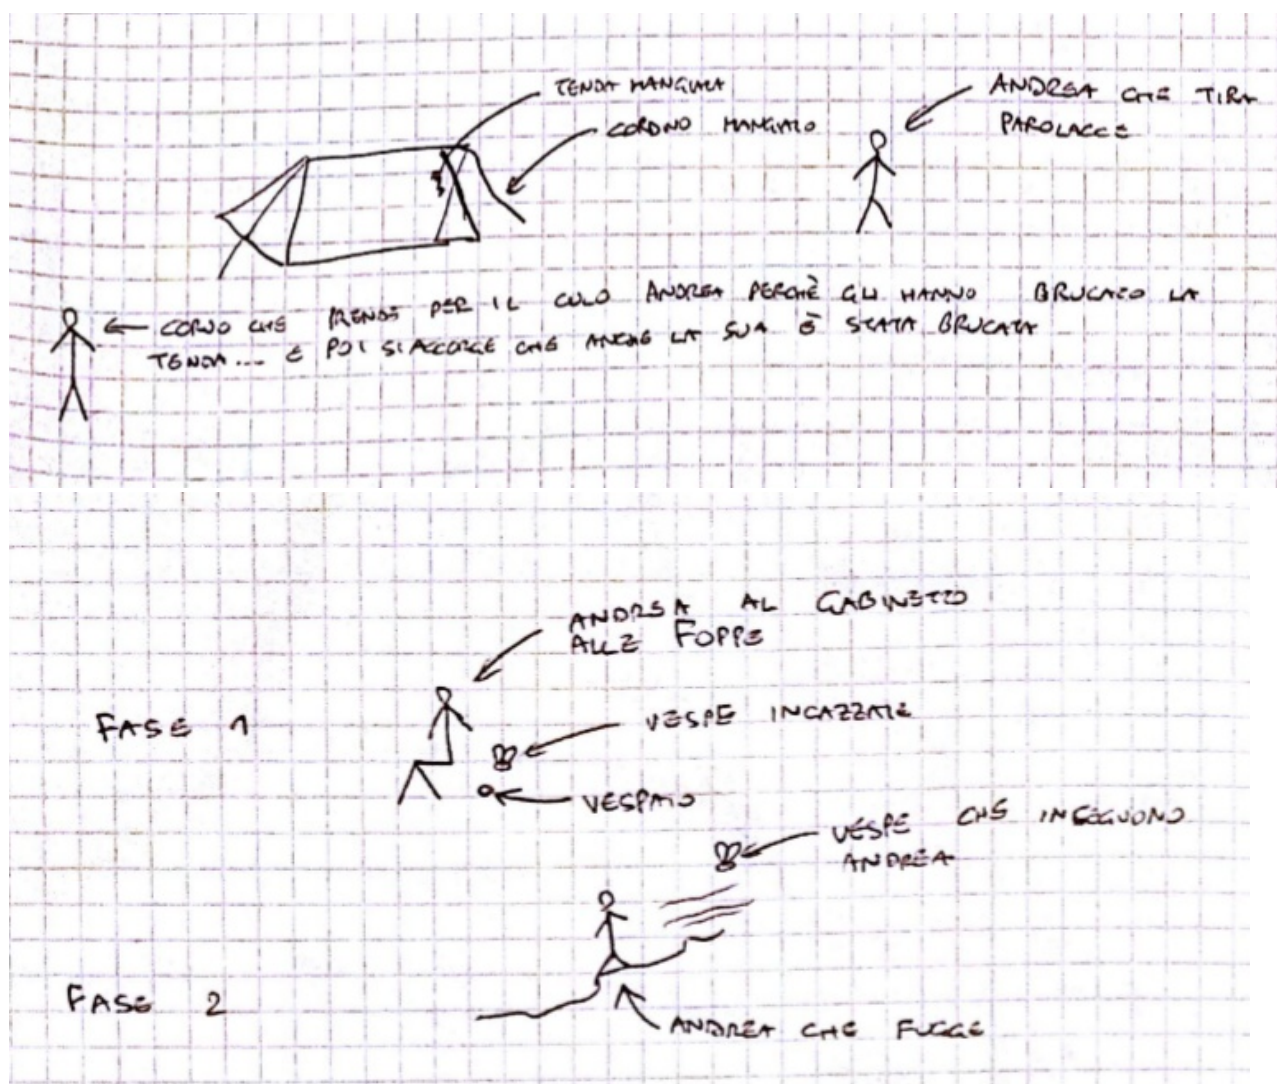 TENDA MANGIATA
CORDINO MANGIATO
ANDREA CHE TIRA
PAROLACCE
CORVO CHE PRENDE PER IL CULO ANDREA PERCHÈ GLI HANNO BRUCATO LA
TENDA... E POI SI ACCORGE CHE ANCHE LA SUA È STATA BRUCATA
ANDREA AL GABINETTO
ALLE FOPPE
FASE 1
VESPE INCAZZATE
VESPAIO
VESPE CHE INSEGUONO
ANDREA
FASE 2
ANDREA CHE FUGGE